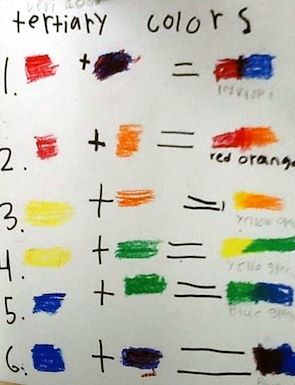 tertiary colors
1. + =
2. + =
red orange
3. + =
yellow
4. + =
5. + =
Blue
6. + =